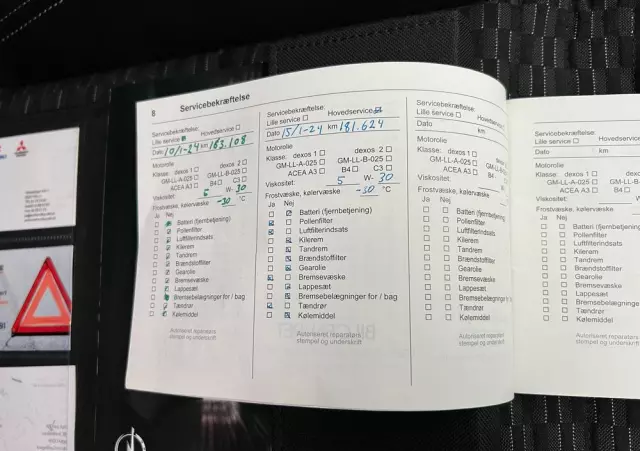 8 Servicebekræftelse
Servicebekræftelse:
Lille service Hovedservice
Dato 10/1-24 km 183.108
Motorolie
Klasse: dexos 1 dexos 2
GM-LL-A-025 GM-LL-B-025
ACEA A3 B4 C3
Viskositet: 5 W- 30
Frostvæske, kølervæske -30 °C
Ja Nej
Batteri (fjernbetjening)
Pollenfilter
Luftfilterindsats
Kilerem
Tandrem
Brændstoffilter
Gearolie
Bremsevæske
Lappesæt
Bremsebelægninger for / bag
Tændrør
Kølemiddel
Autoriseret reparatørs
stempel og underskrift
Servicebekræftelse:
Lille service Hovedservice
Dato 15/1-24 km 181.624
Motorolie
Klasse: dexos 1 dexos 2
GM-LL-A-025 GM-LL-B-025
ACEA A3 B4 C3
Viskositet: 5 W- 30
Frostvæske, kølervæske -30 °C
Ja Nej
Batteri (fjernbetjening)
Pollenfilter
Luftfilterindsats
Kilerem
Tandrem
Brændstoffilter
Gearolie
Bremsevæske
Lappesæt
Bremsebelægninger for / bag
Tændrør
Kølemiddel
Autoriseret reparatørs
stempel og underskrift
Servicebekræftelse:
Lille service Hovedservice
Dato km
Motorolie
Klasse: dexos 1 dexos 2
GM-LL-A-025 GM-LL-B-025
ACEA A3 B4 C3
Viskositet: W-
Frostvæske, kølervæske °C
Ja Nej
Batteri (fjernbetjening)
Pollenfilter
Luftfilterindsats
Kilerem
Tandrem
Brændstoffilter
Gearolie
Bremsevæske
Lappesæt
Bremsebelægninger for / bag
Tændrør
Kølemiddel
Autoriseret reparatørs
stempel og underskrift
Servicebekræftelse:
Lille service
Dato km
Motorolie
Klasse: dexos 1
GM-LL-A-025
ACEA A3 B4
Viskositet:
Frostvæske, kølervæske
Ja Nej
Batteri (fjernbetjening)
Pollenfilter
Luftfilterindsats
Kilerem
Tandrem
Brændstoffilter
Gearolie
Bremsevæske
Lappesæt
Bremsebelægninger for / bag
Tændrør
Kølemiddel
Autoriseret reparatørs
stempel og underskrift